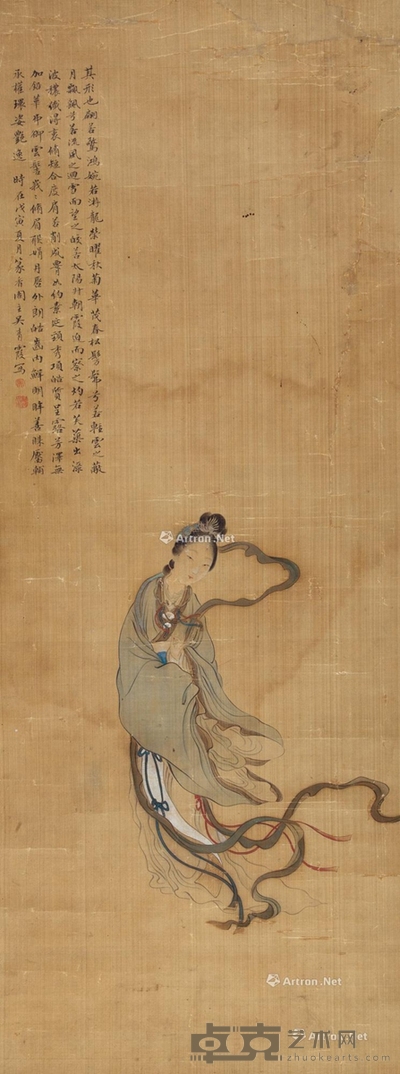 其形也翩若驚鴻婉若游龍榮曜秋菊華茂春松髣髴兮若輕雲之蔽
月飄颻兮若流風之迴雪而望之皎若太陽升朝霞迫而察之灼若芙蕖出淥
波穠纖得衷脩短合度肩若削成腰如約素延頸秀項皓質呈露芳澤無
加鉛華弗御雲髻峨峨脩眉聯娟丹唇外朗皓齒內鮮明眸善睞靨輔
承權瓌姿豔逸 時在戊寅夏月篆香閣主吳青霞寫
Artron.Net
Artron.Net
Artron.Net
Artron.Net
Artron.Net
卓克艺术网
zhuokearts.com